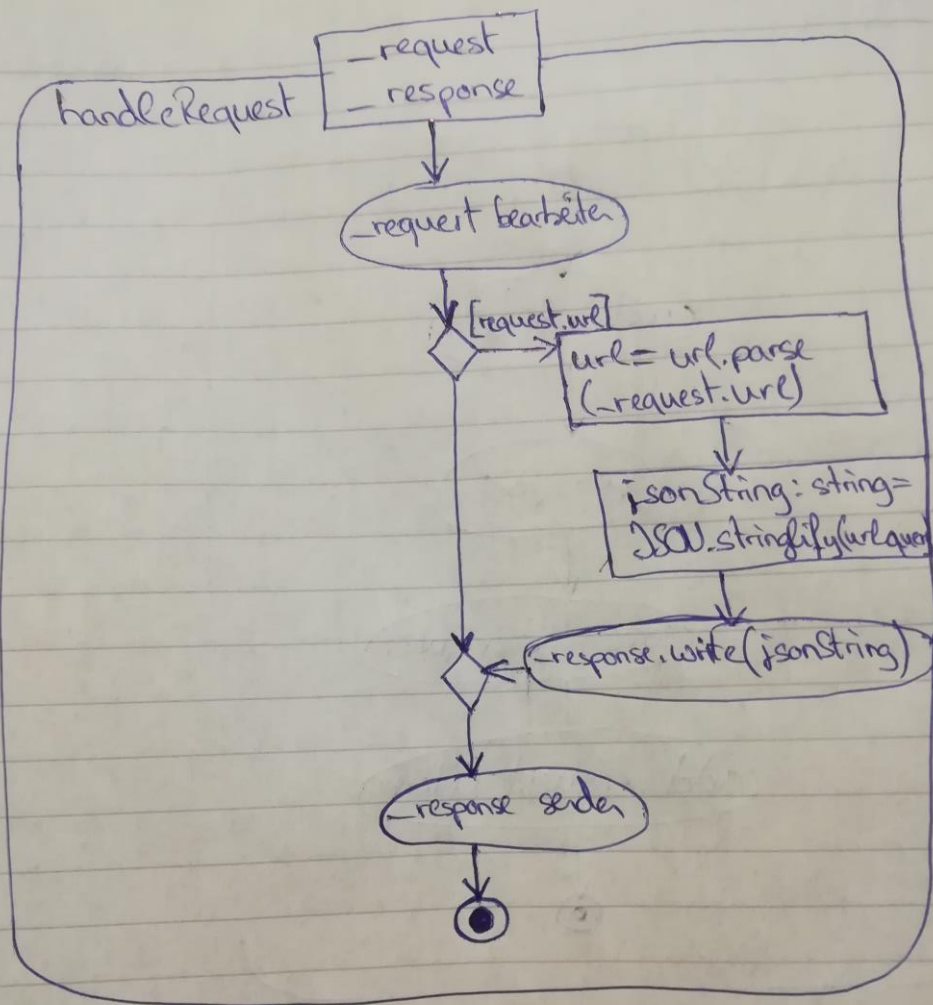 _request
_response
handleRequest
_request bearbeiten
[request.url]
url = url.parse
(_request.url)
jsonString: string =
JSON.stringlify(urlquer
_response.write(jsonString)
_response senden